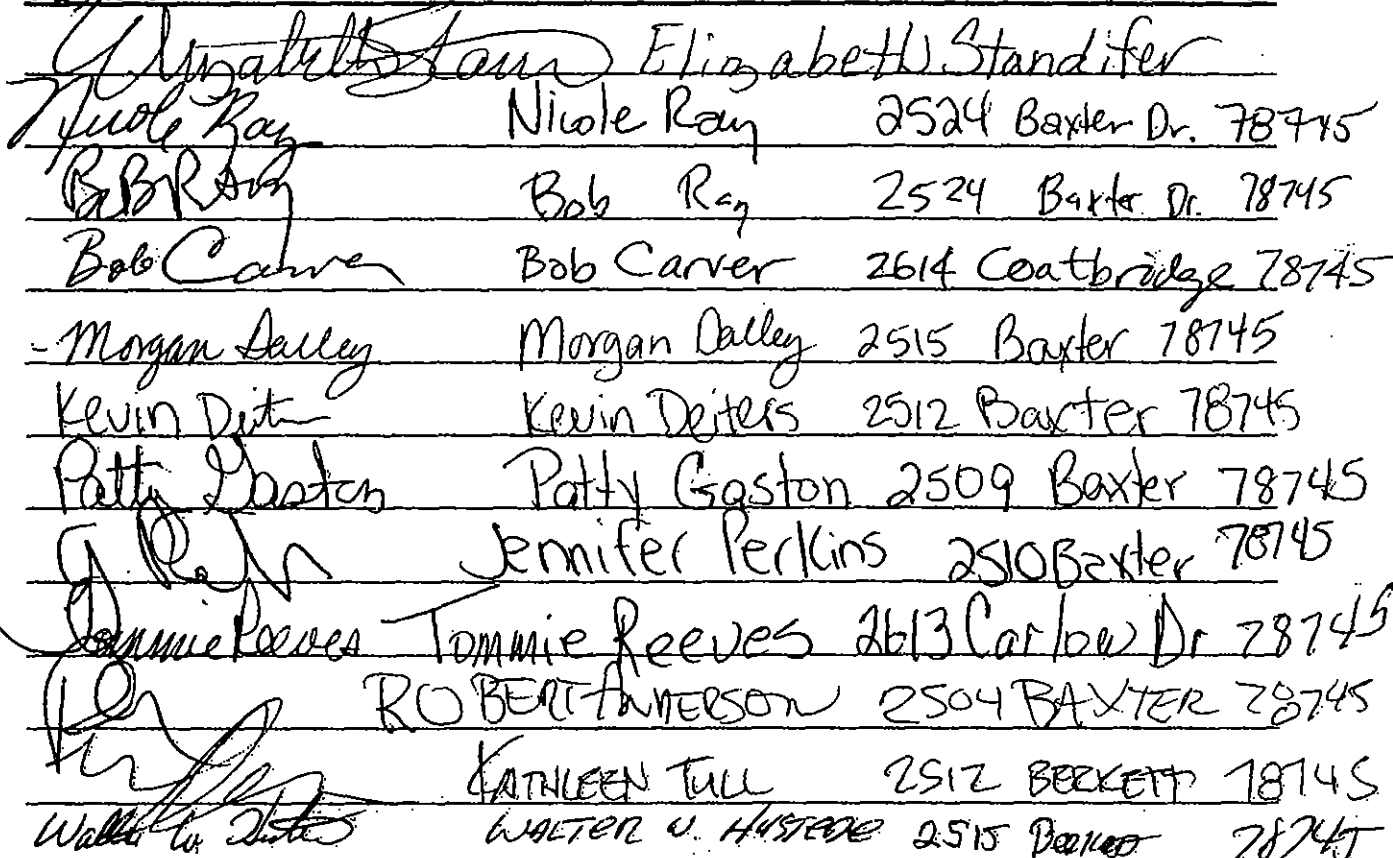 Elizabeth Standifer
Nicole Ray Nicole Ray 2524 Baxter Dr. 78745
Bob Ray 2524 Baxter Dr. 78745
Bob Carver Bob Carver 2614 Coatbridge 78745
Morgan Dalley Morgan Dalley 2515 Baxter 78745
Kevin Kevin Deiters 2512 Baxter 78745
Patty Gaston Patty Gaston 2509 Baxter 78745
Jennifer Perkins 2510 Baxter 78745
Tommie Reeves Tommie Reeves 2613 Carlow Dr 78745
ROBERT ANDERSON 2504 BAXTER 78745
KATHLEEN TULL 2512 BERKETT 78745
WALTER W. HUSTEDE 2515 78745